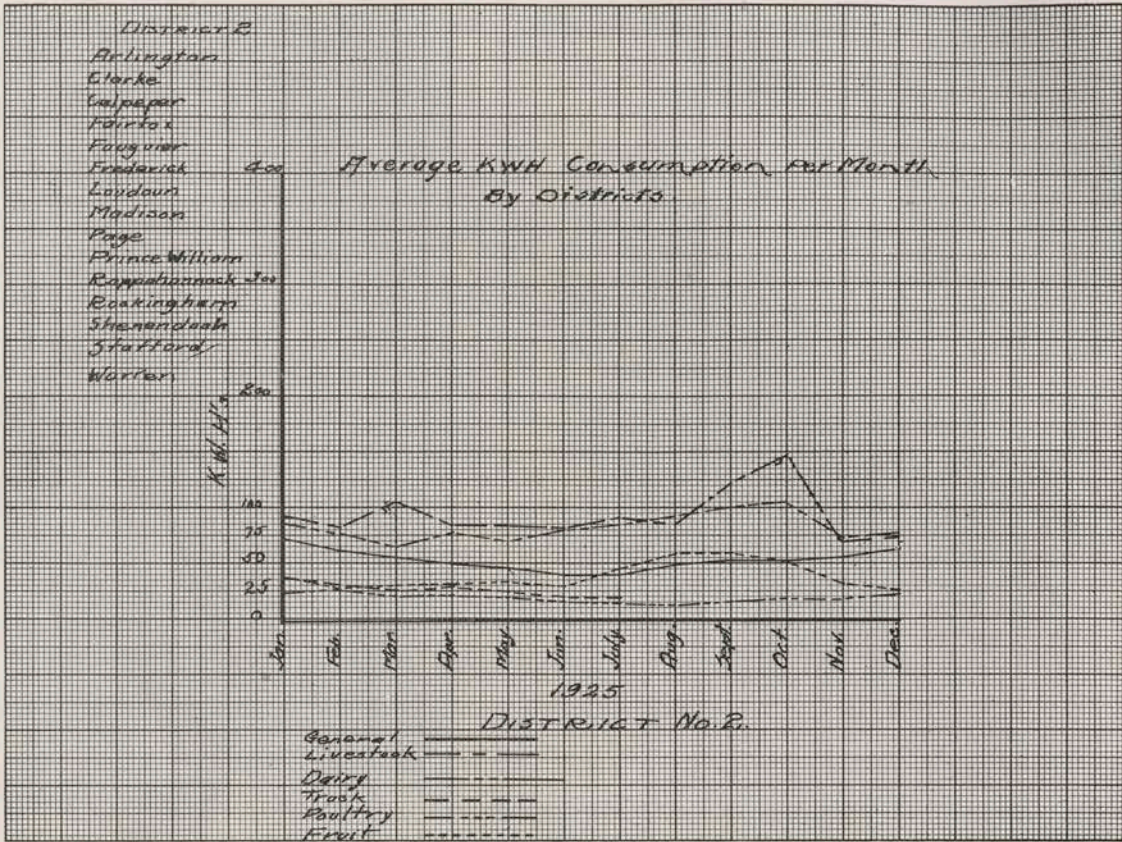 DISTRICT 2
Arlington
Clarke
Culpeper
Fairfax
Fauquier
Frederick
Loudoun
Madison
Page
Prince William
Rappahannock
Rockingham
Shenandoah
Stafford
Warren
Average KWH Consumption Per Month
By Districts.
400
300
200
100
75
50
25
0
K.W.H's
Jan. Feb. Mar. Apr. May. Jun. July. Aug. Sept. Oct. Nov. Dec.
1925
DISTRICT No. 2.
General
Livestock
Dairy
Truck
Poultry
Fruit